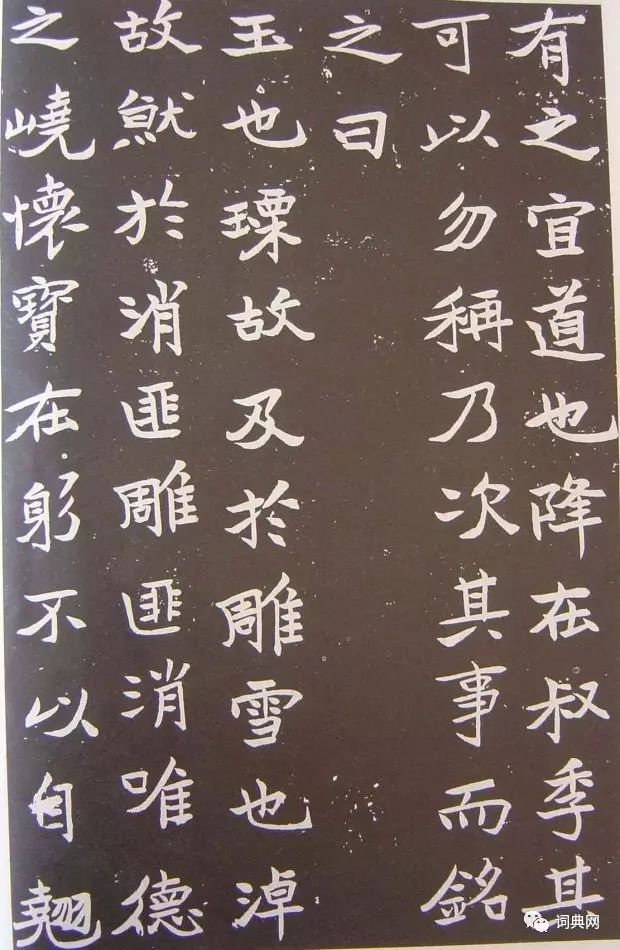 有之宜道也降在叔季其
可以勿稱乃次其事而銘
之曰
玉也瑮故及於雕雪也淖
故就於消匪雕匪消唯德
之嶢懷寶在躬不以自翹
词典网